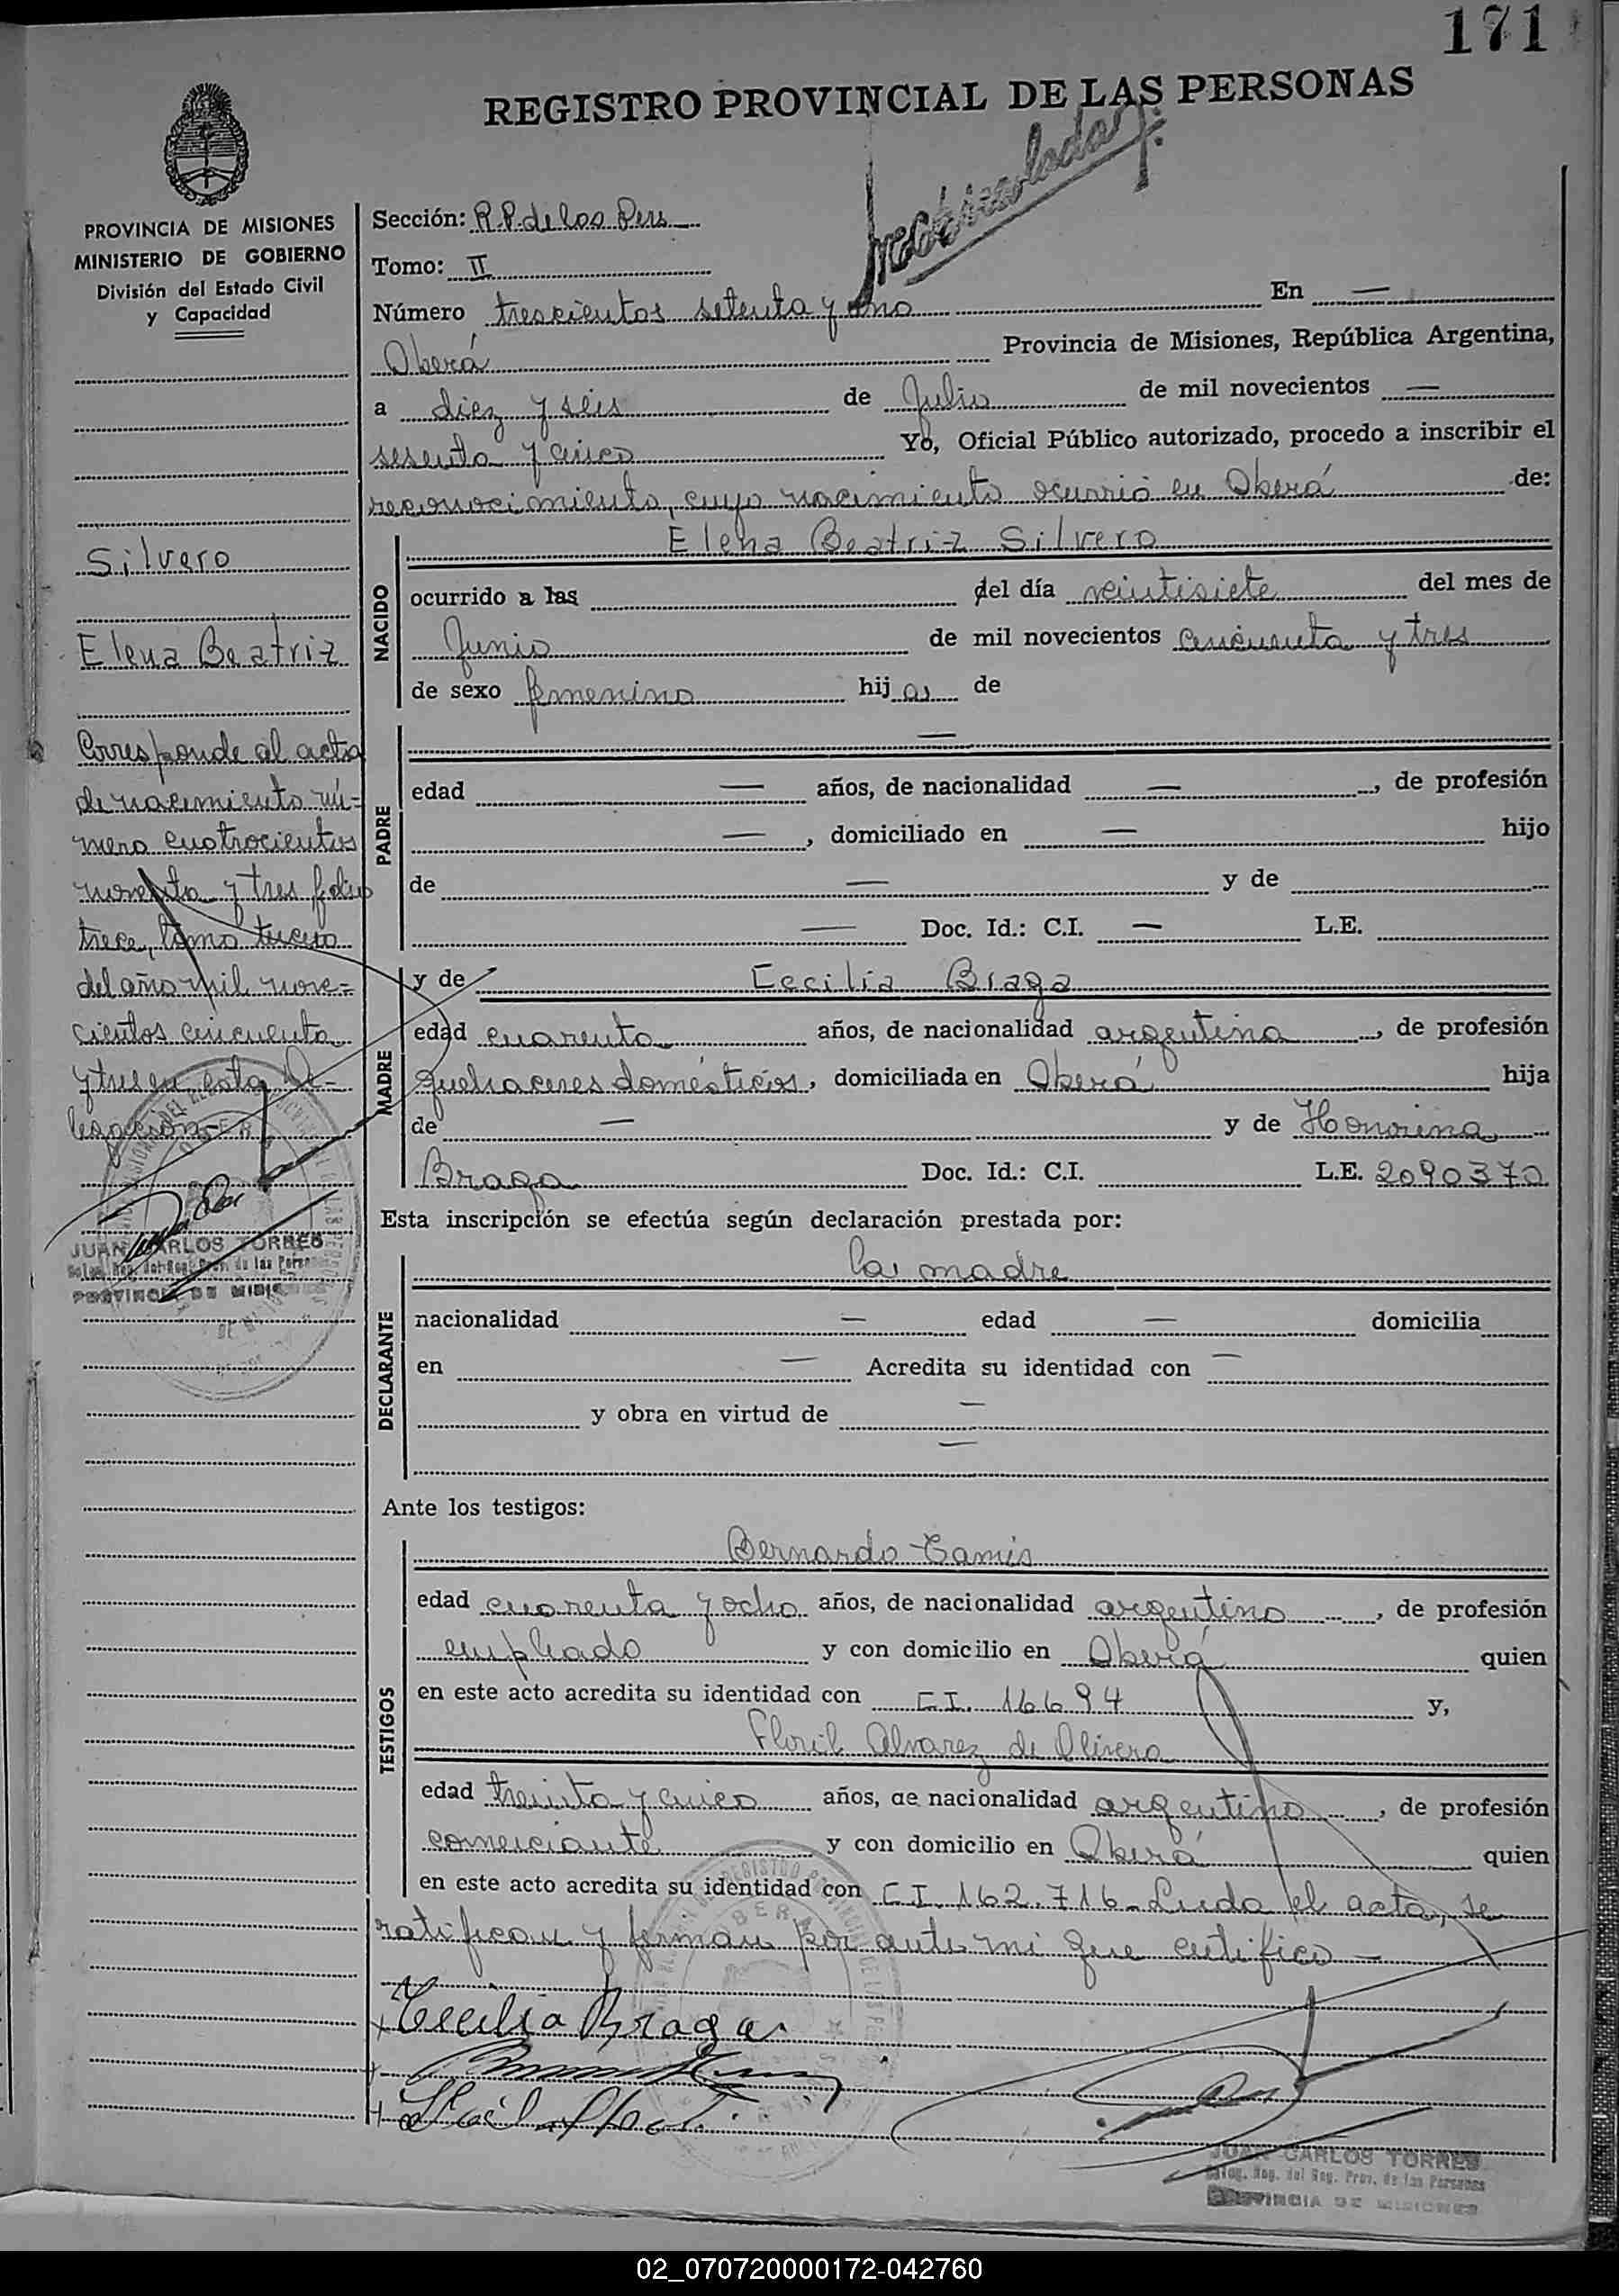 171
REGISTRO PROVINCIAL DE LAS PERSONAS
PROVINCIA DE MISIONES
MINISTERIO DE GOBIERNO
División del Estado Civil
y Capacidad
Silvero
Elena Beatriz
Corresponde al acta
de nacimiento nú=
mero cuatrocientos
noventa y tres folio
trece, tomo tercero
del año mil nove=
cientos cincuenta
y tres en esta De-
legación-
JUAN CARLOS TORRES
PROVINCIA DE MISIONES
Sección: R.P. de las Pers
Tomo: II
Número trescientos setenta y uno En —
Oberá Provincia de Misiones, República Argentina,
a diez y seis de Julio de mil novecientos —
sesenta y cinco Yo, Oficial Público autorizado, procedo a inscribir el
reconocimiento, cuyo nacimiento ocurrió en Oberá de:
NACIDO
Elena Beatriz Silvero
ocurrido a las del día veintisiete del mes de
Junio de mil novecientos cincuenta y tres
de sexo femenino hija de
PADRE
—
edad — años, de nacionalidad —, de profesión
—, domiciliado en — hijo
de — y de
— Doc. Id.: C.I. — L.E.
MADRE
y de Cecilia Braga
edad cuarenta años, de nacionalidad argentina, de profesión
quehaceres domésticos, domiciliada en Oberá hija
de — y de Honorina
Braga Doc. Id.: C.I. L.E. 2090370
Esta inscripción se efectúa según declaración prestada por:
DECLARANTE
la madre
nacionalidad — edad — domicilia
en — Acredita su identidad con —
y obra en virtud de —
—
Ante los testigos:
TESTIGOS
Bernardo
edad cuarenta y ocho años, de nacionalidad argentino, de profesión
empleado y con domicilio en Oberá quien
en este acto acredita su identidad con C.I. 16694 y,
Alvarez de Olivera
edad treinta y cinco años, de nacionalidad argentino, de profesión
comerciante y con domicilio en Oberá quien
en este acto acredita su identidad con C.I. 162.716- Leida el acta, se
ratifican y firman por ante mi que certifico —
Cecilia Braga
JUAN CARLOS TORRES
Deleg. Reg. del Reg. Prov. de las Personas
PROVINCIA DE MISIONES
02_070720000172-042760